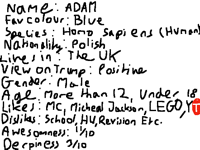 Name: ADAM
Fav colour: Blue
Species: Homo Sapiens (Human)
Nationality: Polish
Lives in: The UK
View on Trump: Positive
Gender: Male
Age: More than 12, Under 18
Likes: MC, Micheal Jackson, LEGO, Y
Dislikes: School, HW, Revision Etc.
Awesomness: 11/10
Derpiness 3/10